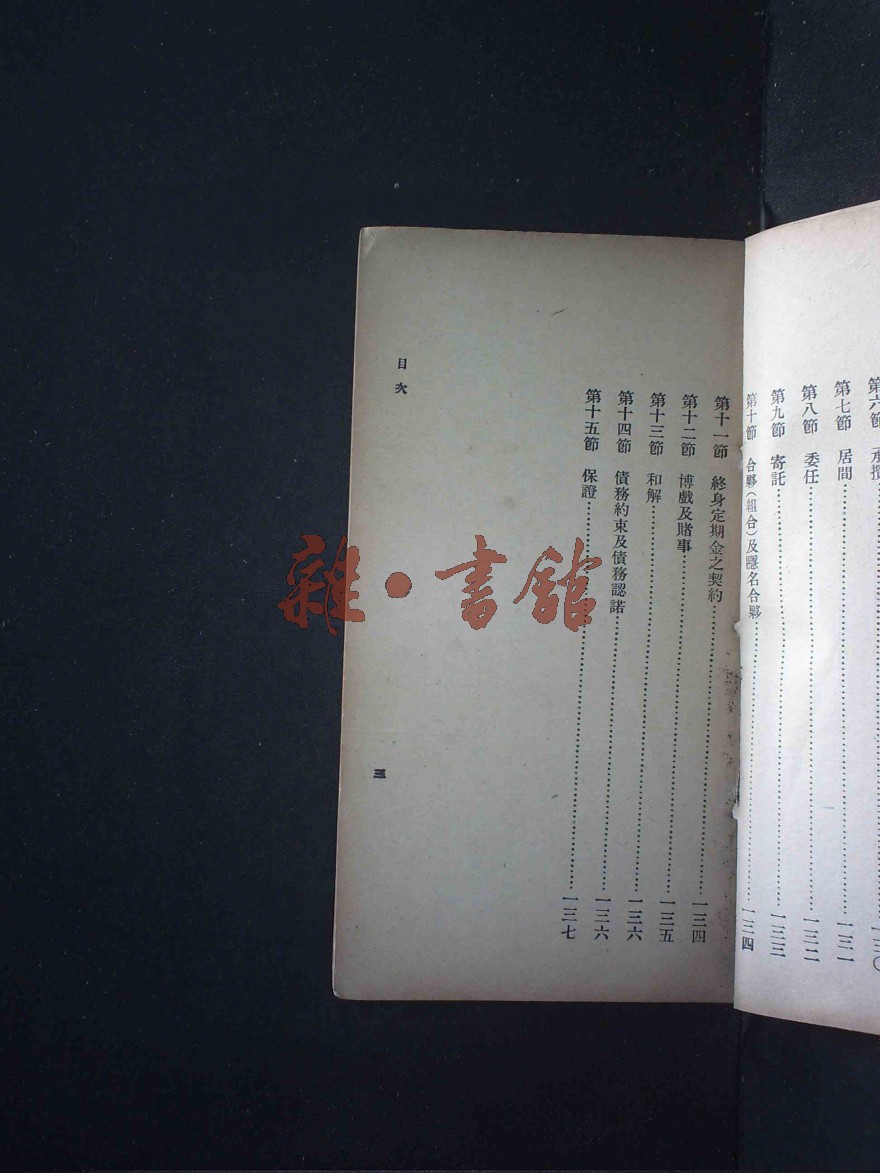 第六節　承攬……一三〇
第七節　居間……一三一
第八節　委任……一三二
第九節　寄託……一三三
第十節　合夥（組合）及隱名合夥……一三四
第十一節　終身定期金之契約……一三四
第十二節　博戲及賭事……一三五
第十三節　和解……一三六
第十四節　債務約束及債務認諾……一三六
第十五節　保證……一三七
目次
三
雜·書館